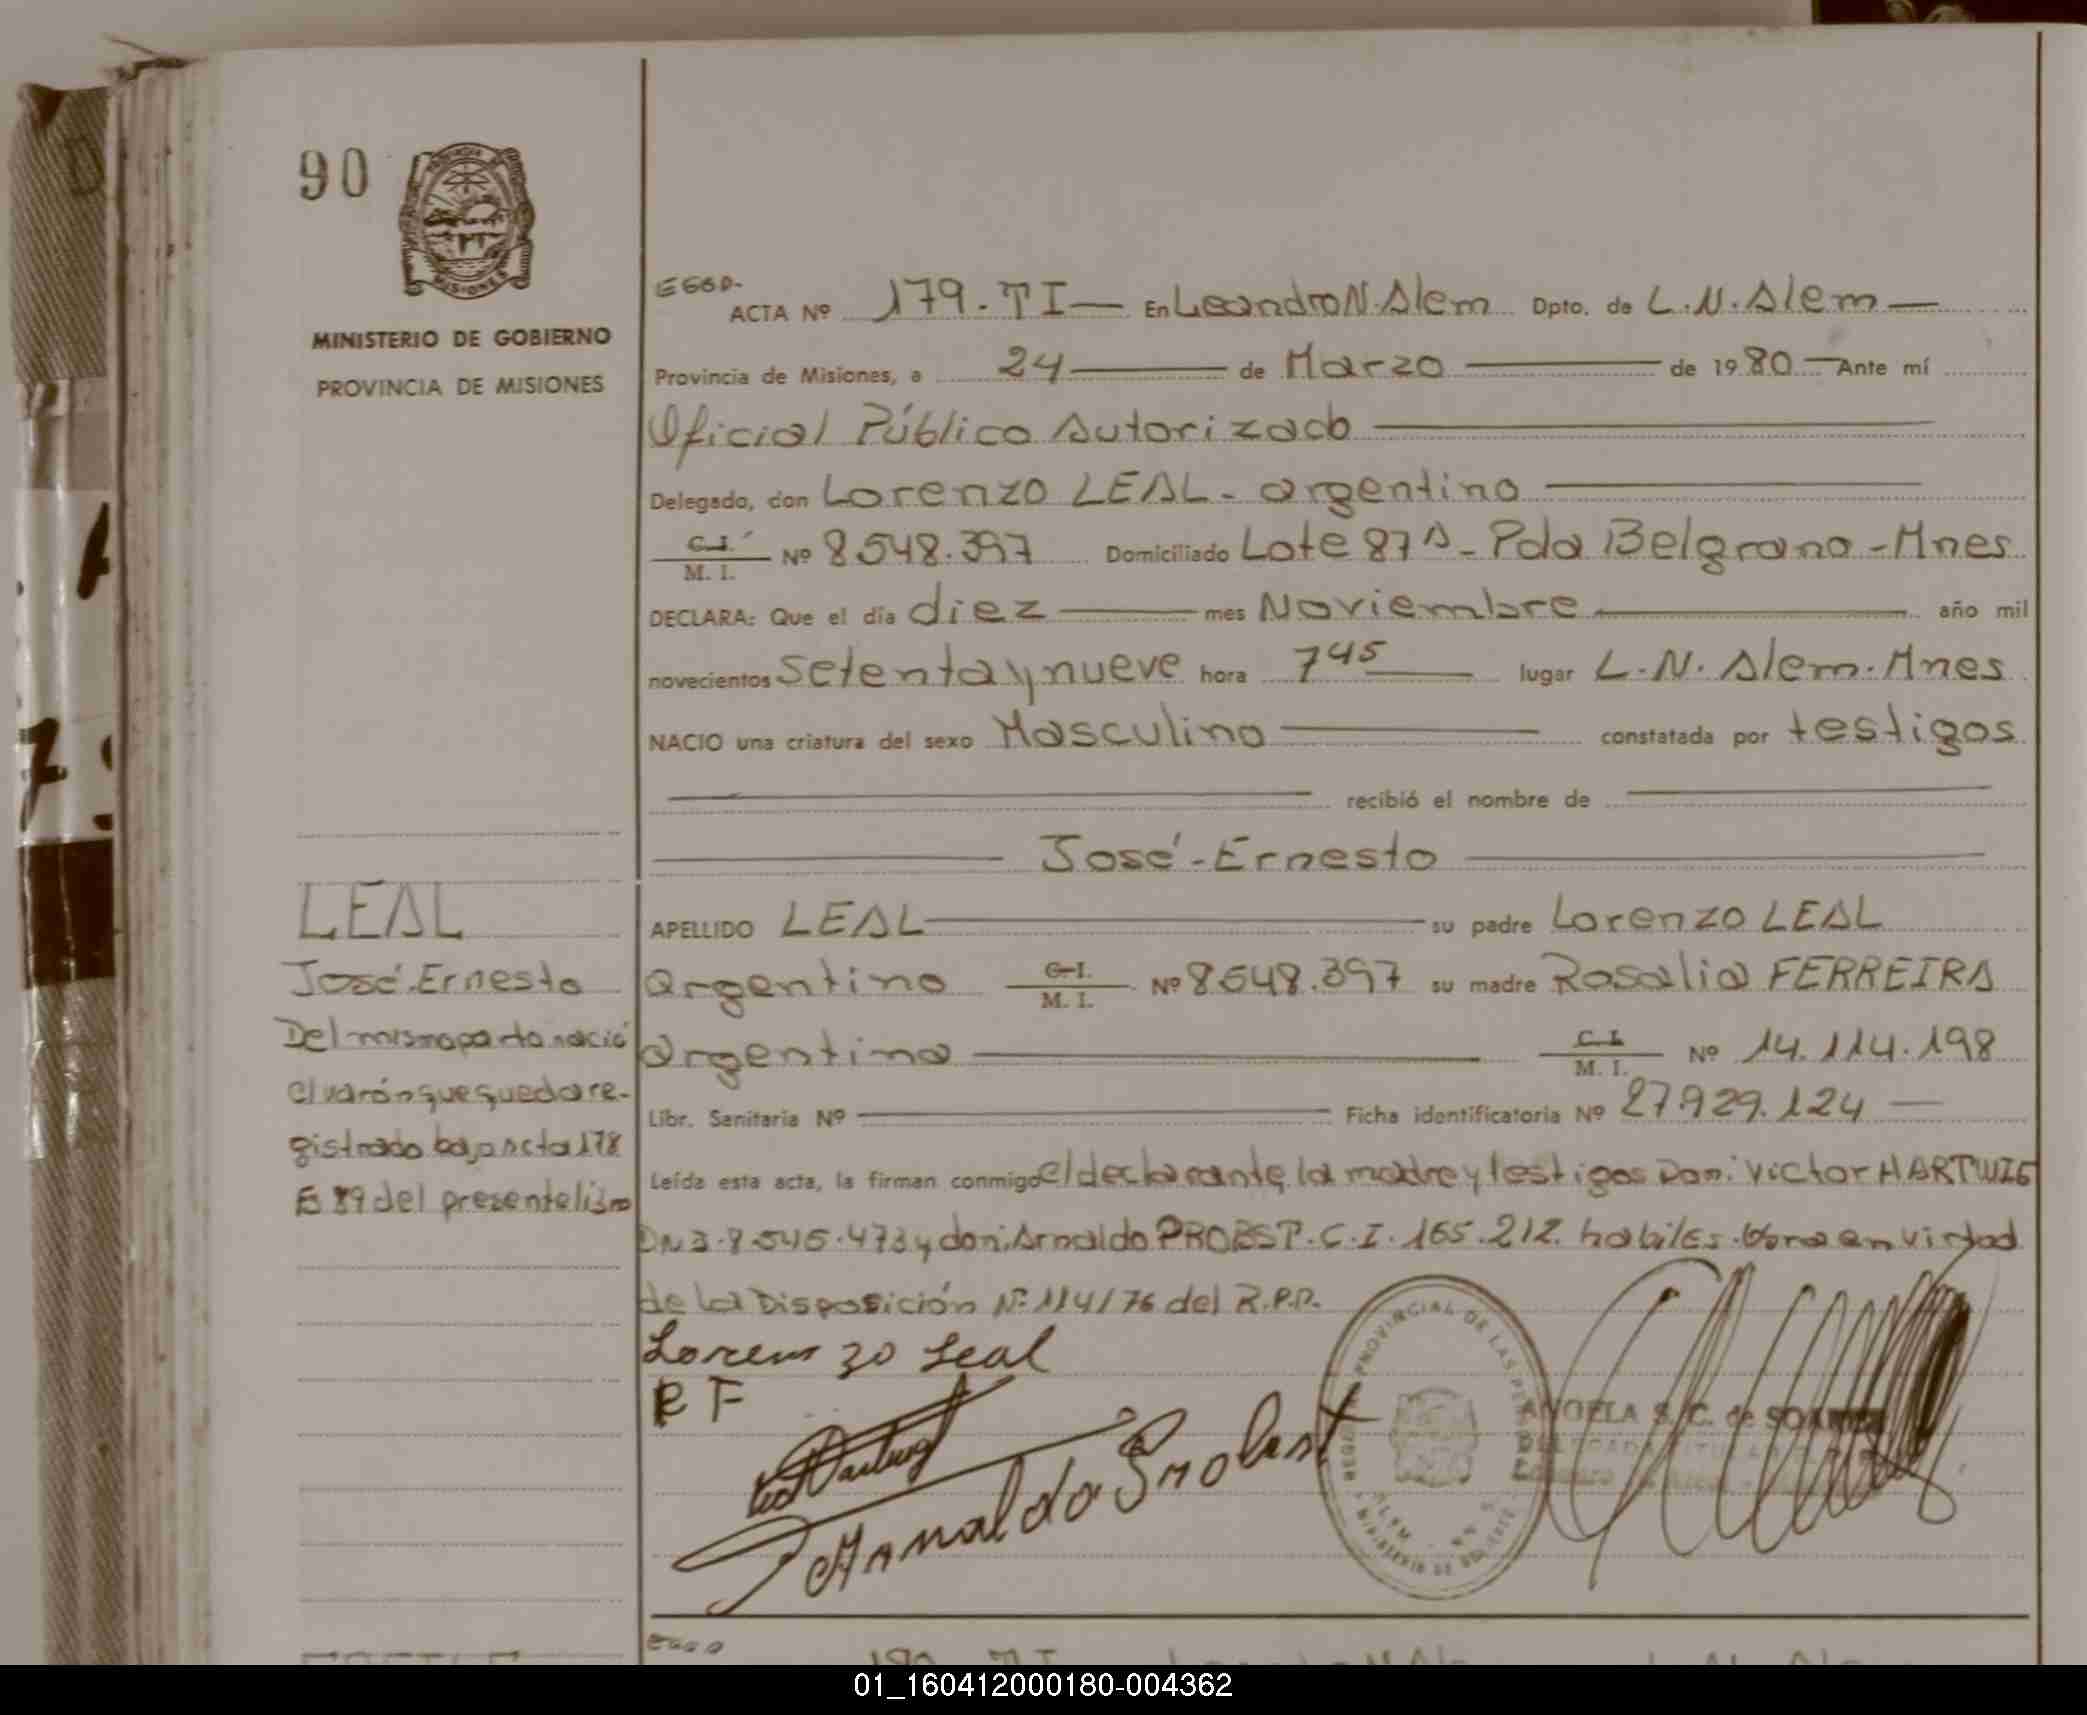 90
MINISTERIO DE GOBIERNO
PROVINCIA DE MISIONES
ACTA Nº 179. TI — En Leandro N. Alem Dpto. de L. N. Alem —
Provincia de Misiones, a 24 — de Marzo — de 1980 — Ante mí
Oficial Público Autorizado
Delegado, don Lorenzo LEAL - argentino
C. I. / M. I. Nº 8.548.397 Domiciliado Lote 87A - Pda Belgrano - Mnes
DECLARA: Que el día diez — mes Noviembre — año mil
novecientos setenta y nueve hora 7 45 — lugar L. N. Alem. Mnes
NACIO una criatura del sexo Masculino — constatada por testigos
recibió el nombre de
José - Ernesto
APELLIDO LEAL — su padre Lorenzo LEAL
Argentino C. I. / M. I. Nº 8.548.397 su madre Rosalia FERREIRA
argentina — C. I. / M. I. Nº 14.114.198
Libr. Sanitaria Nº — Ficha identificatoria Nº 27.929.124 —
Leída esta acta, la firman conmigo el declarante, la madre y testigos Don: Victor HARTWIG
y don: Arnaldo PROBST. C. I. 165.212. habiles. en virtud
de la Disposición Nº 114/76 del R.P.P.
LEAL
José. Ernesto
Del mismo parto nació
el varón que queda re-
gistrado bajo acta 178
89 del presente libro
Lorenzo Leal
R F
Arnaldo Probst
PROVINCIAL DE LAS
ALEM
MINISTERIO DE GOBIERNO
ANGELA S. C. de
01_160412000180-004362